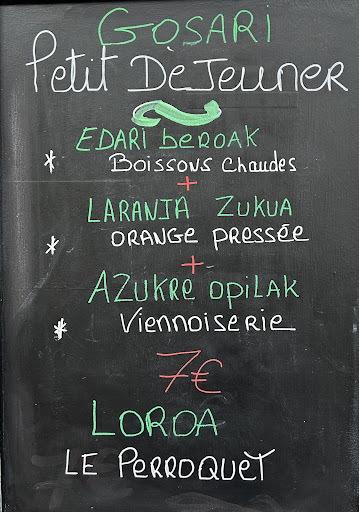 GOSARI
Petit DéJeuner
EDARI beROAK
* Boissons chaudes
+
LARANJA ZUKUA
* ORANGE PRESSÉe
+
AZUKRe OPILAK
* VIennOISeRIe
7€
LOROA
LE PeRROQUeT